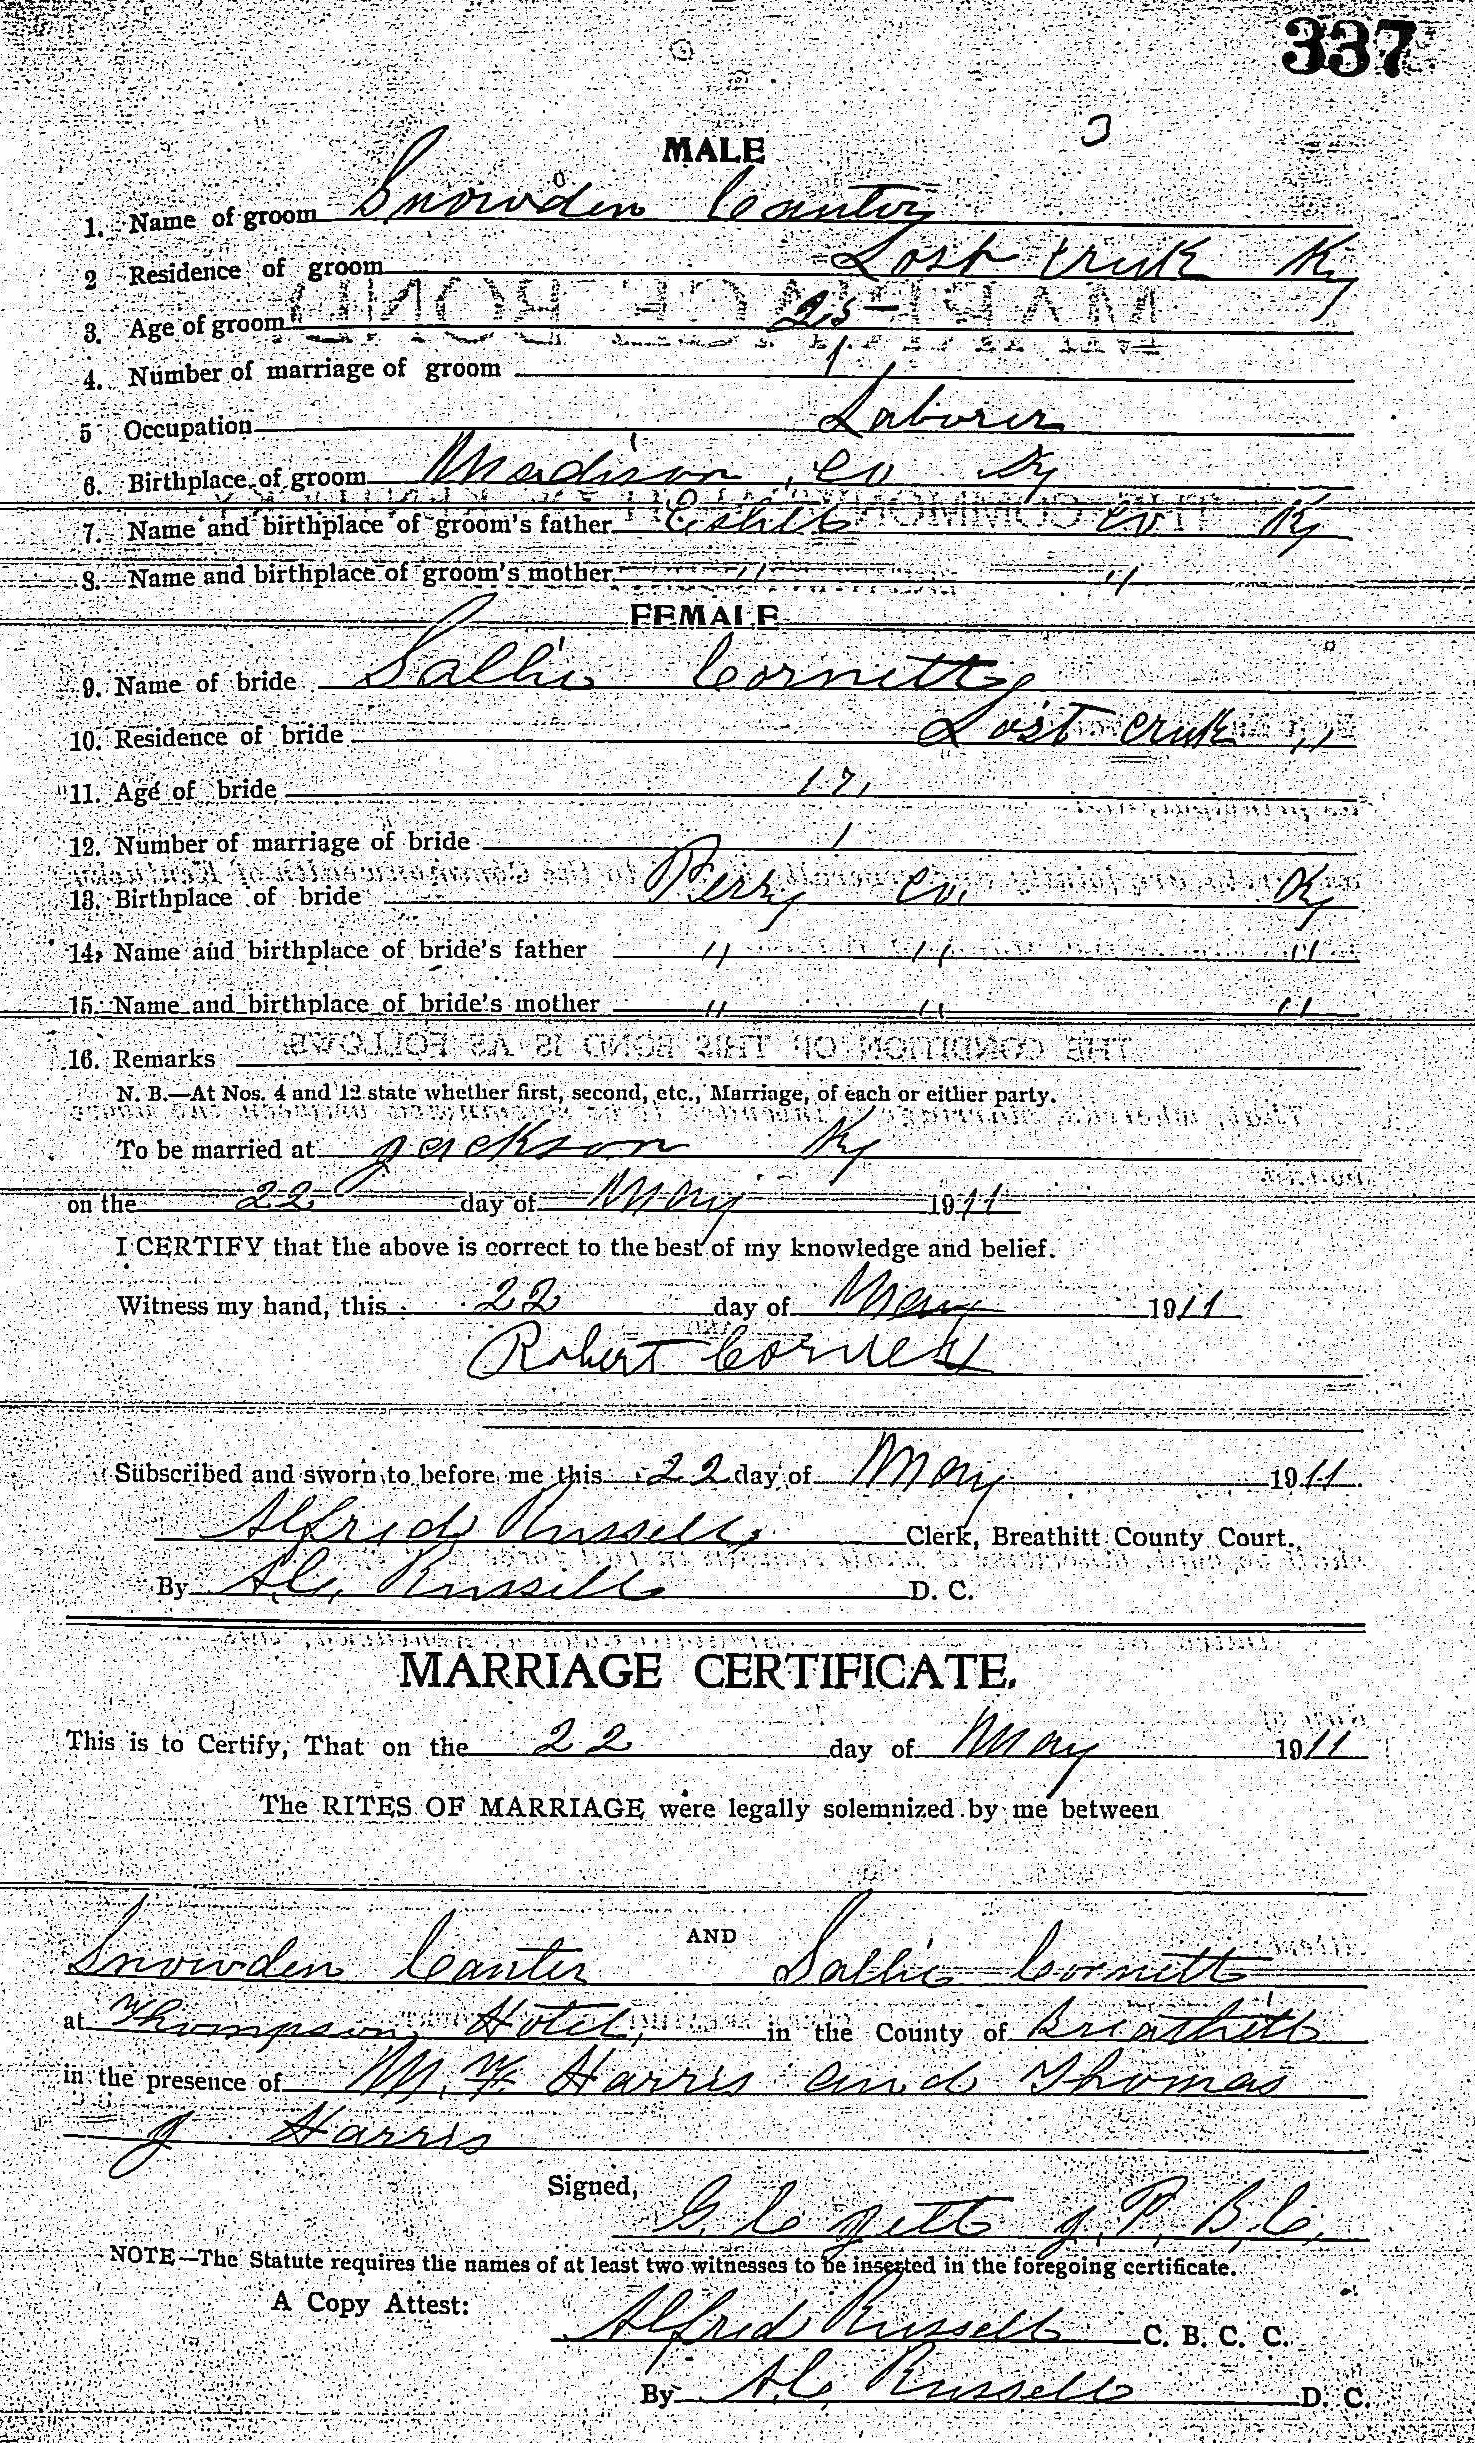 337
MALE
1. Name of groom Snowden Canter
2 Residence of groom Lost Creek Ky
3. Age of groom 25
4. Number of marriage of groom 1
5 Occupation Laborer
6. Birthplace of groom Madison Co Ky
7. Name and birthplace of groom's father Estill Co Ky
8. Name and birthplace of groom's mother " "
FEMALE
9. Name of bride Sallie Cornett
10. Residence of bride Lost Creek "
11. Age of bride 17
12. Number of marriage of bride 1
13. Birthplace of bride Perry Co. Ky
14. Name and birthplace of bride's father " " "
15. Name and birthplace of bride's mother " " "
16. Remarks
N. B.—At Nos. 4 and 12 state whether first, second, etc., Marriage, of each or either party.
To be married at Jackson Ky
on the 22 day of May 1911
I CERTIFY that the above is correct to the best of my knowledge and belief.
Witness my hand, this 22 day of May 1911
Robert Cornett
Subscribed and sworn to before me this 22 day of May 1911
Alfred Russell Clerk, Breathitt County Court.
By A.C. Russell D. C.
MARRIAGE CERTIFICATE.
This is to Certify, That on the 22 day of May 1911
The RITES OF MARRIAGE were legally solemnized by me between
Snowden Canter AND Sallie Cornett
at Thompson Hotel, in the County of Breathitt
in the presence of M. F. Harris and Thomas
J Harris
Signed,
G. C. Jett J. P. B. C.
NOTE—The Statute requires the names of at least two witnesses to be inserted in the foregoing certificate.
A Copy Attest:
Alfred Russell C. B. C. C.
By A.C. Russell D. C.